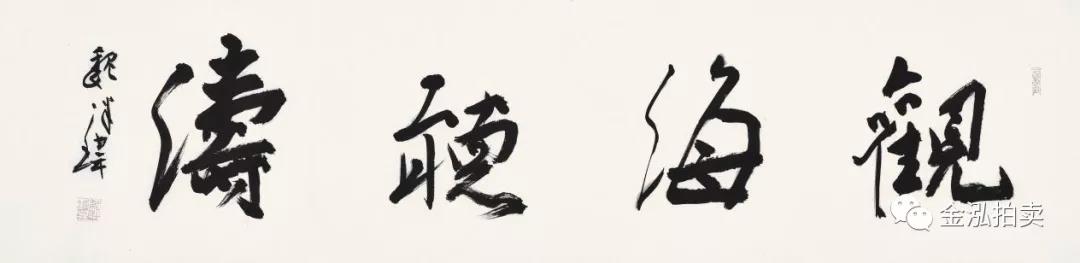 觀海聽濤
魏
金泓拍卖